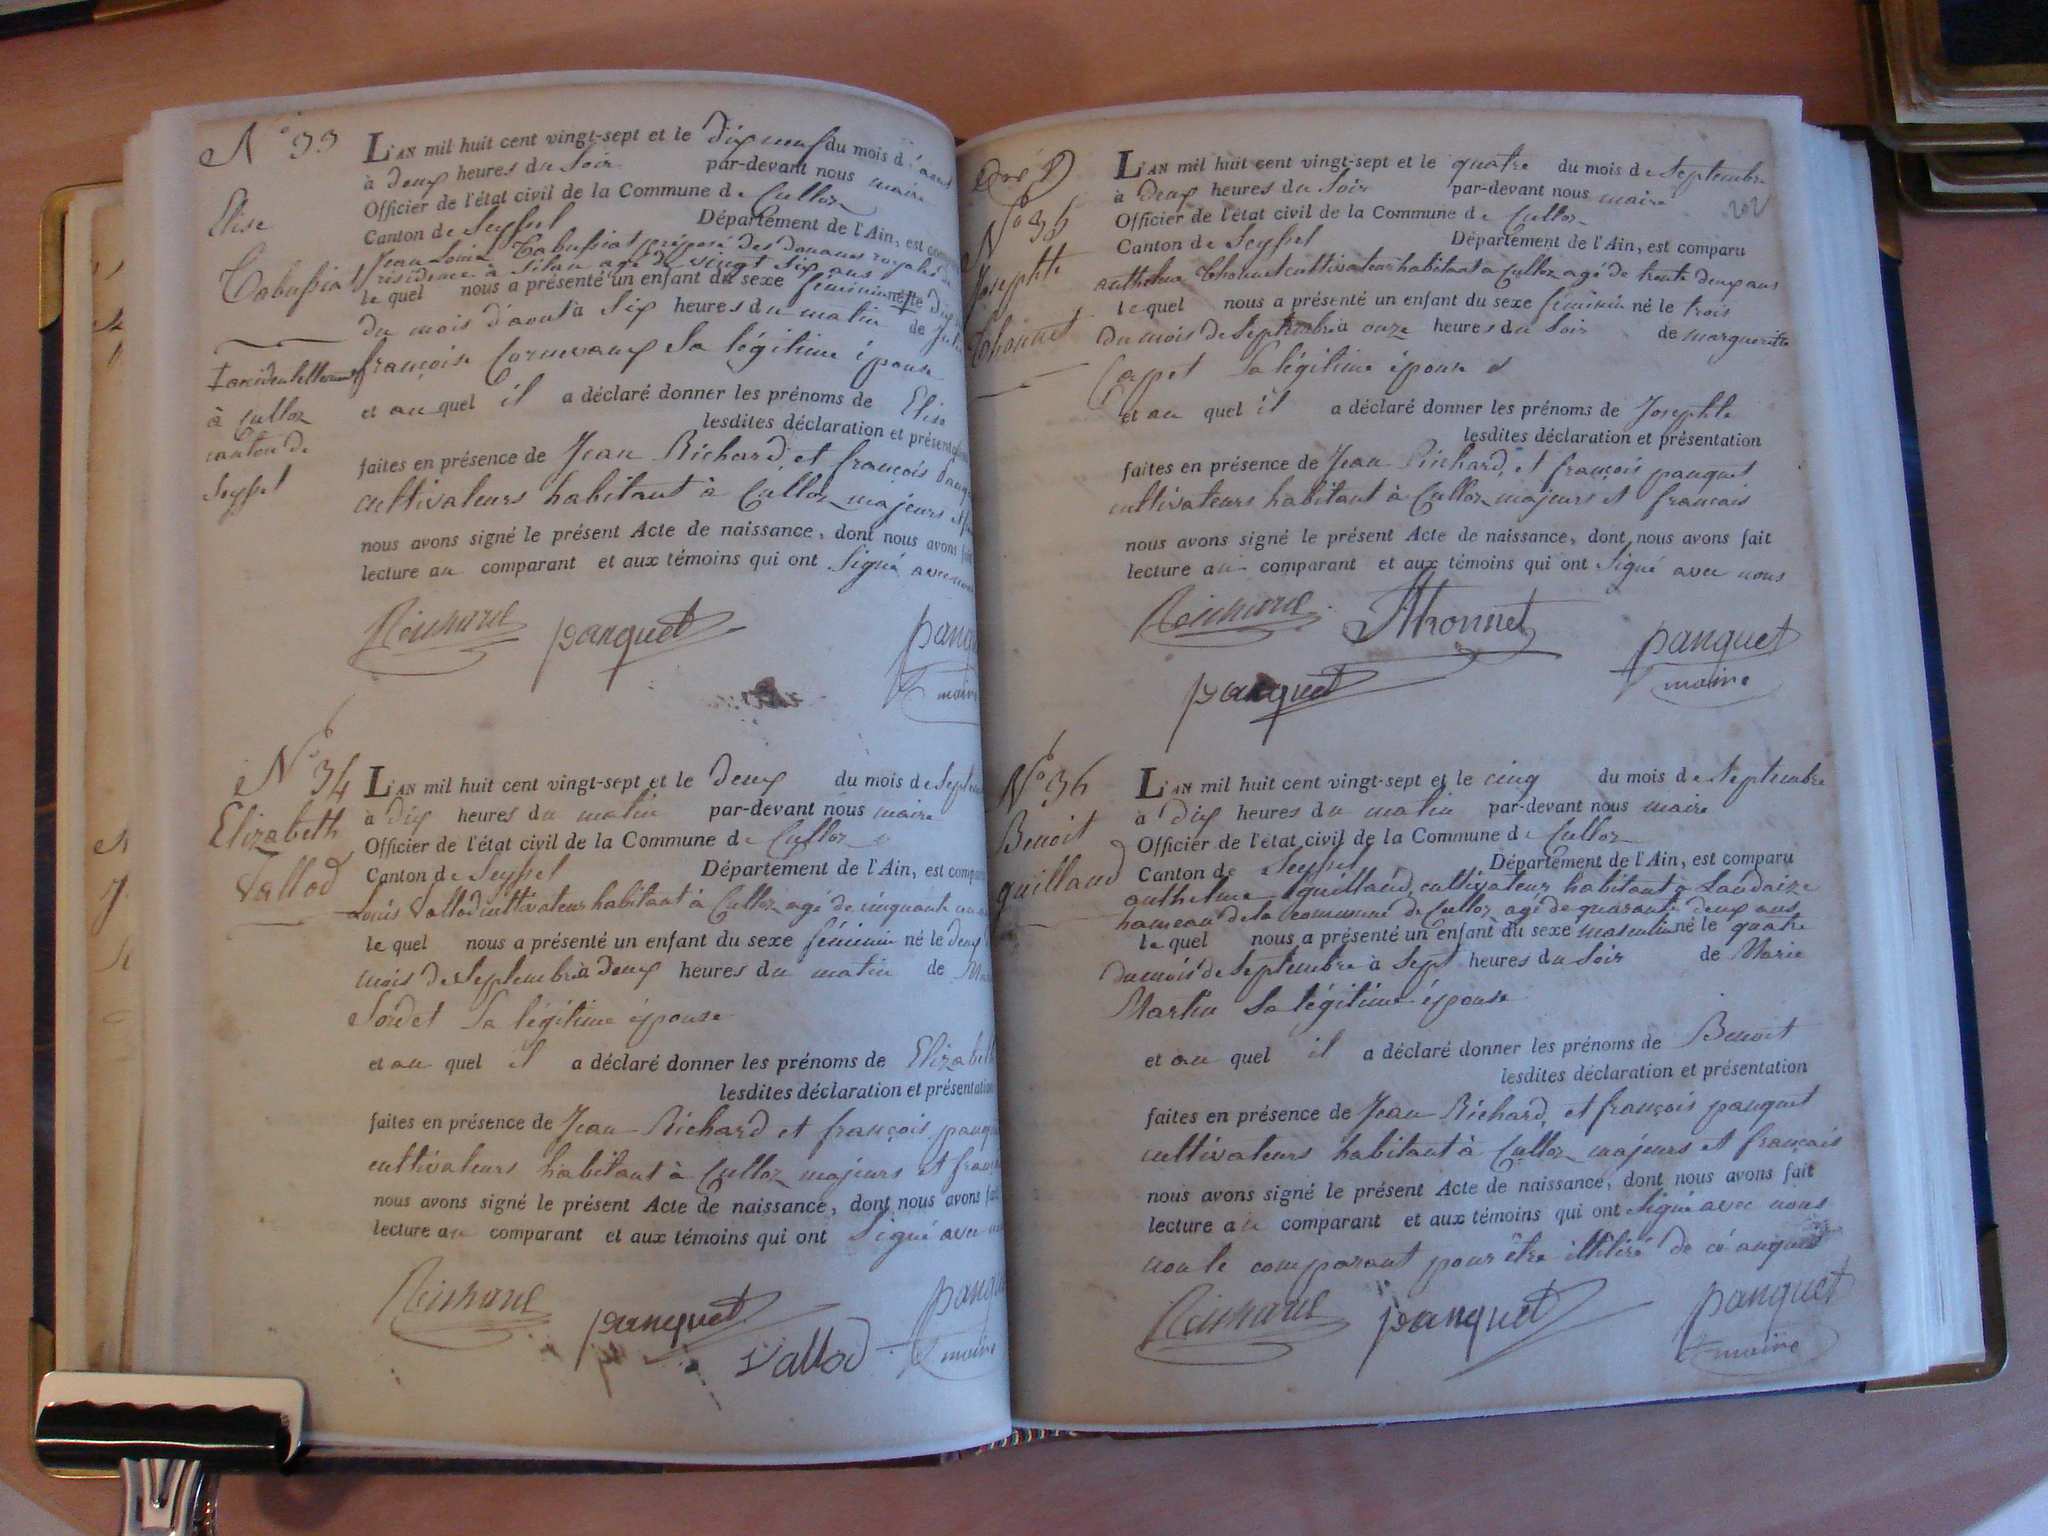 N° 33
Elise
Tabussiat
L'AN mil huit cent vingt-sept et le dix neuf du mois d'aout
à deux heures du soir par-devant nous maire
Officier de l'état civil de la Commune de Culloz
Canton de Seyssel Département de l'Ain, est
Jean Louis Tabussiat préposé des douanes royales
résidence à Silan agé de vingt six ans
le quel nous a présenté un enfant du sexe feminin né le
du mois d'aout à six heures du matin de
françoise Cornevaux sa légitime épouse
‡ accidentellement
à Culloz
canton de
Seyssel
et au quel il a déclaré donner les prénoms de Elise
lesdites déclaration et
faites en présence de Jean Richard, et françois
cultivateurs habitant à Culloz majeurs et
nous avons signé le présent Acte de naissance, dont nous avons fait
lecture au comparant et aux témoins qui ont signé avec nous
Richard panquet
maire
N° 34
Elizabeth
Vallod
L'AN mil huit cent vingt-sept et le deux du mois de
à dix heures du matin par-devant nous maire
Officier de l'état civil de la Commune de Culloz
Canton de Seyssel Département de l'Ain, est
Louis Vallod cultivateur habitant à Culloz agé de cinquante
le quel nous a présenté un enfant du sexe féminin né le deux
mois de Septembre à deux heures du matin de
Sordet sa légitime épouse
et au quel il a déclaré donner les prénoms de Elizabeth
lesdites déclaration et présentation
faites en présence de Jean Richard et françois
cultivateurs habitant à Culloz majeurs et
nous avons signé le présent Acte de naissance, dont nous avons fait
lecture au comparant et aux témoins qui ont signé avec
Richard panquet
Vallod maire
202
N° 35
Josephte
Thonnet
L'AN mil huit cent vingt-sept et le quatre du mois de Septembre
à deux heures du soir par-devant nous maire
Officier de l'état civil de la Commune de Culloz
Canton de Seyssel Département de l'Ain, est comparu
anthelme Thonnet cultivateur habitant a Culloz agé de trente deux ans
le quel nous a présenté un enfant du sexe féminin né le trois
du mois de Septembre à onze heures du soir de marguerite
Cappet sa légitime épouse et
et au quel il a déclaré donner les prénoms de Josephte
lesdites déclaration et présentation
faites en présence de Jean Richard, et françois panquet
cultivateurs habitant à Culloz majeurs et francais
nous avons signé le présent Acte de naissance, dont nous avons fait
lecture au comparant et aux témoins qui ont signé avec nous
Richard Thonnet panquet
panquet maire
N° 36
Benoit
guilland
L'AN mil huit cent vingt-sept et le cinq du mois de Septembre
à dix heures du matin par-devant nous maire
Officier de l'état civil de la Commune de Culloz
Canton de Seyssel Département de l'Ain, est comparu
anthelme guilland, cultivateur habitant à Landaize
hameau de la commune de Culloz agé de quarante deux ans
le quel nous a présenté un enfant du sexe masculin né le quatre
du mois de Septembre à sept heures du soir de Marie
Martin sa légitime épouse
et au quel il a déclaré donner les prénoms de Benoit
lesdites déclaration et présentation
faites en présence de Jean Richard, et françois panquet
cultivateurs habitant à Culloz majeurs et français
nous avons signé le présent Acte de naissance, dont nous avons fait
lecture au comparant et aux témoins qui ont signé avec nous
non le comparant pour être illitéré de ce
Richard panquet panquet
maire